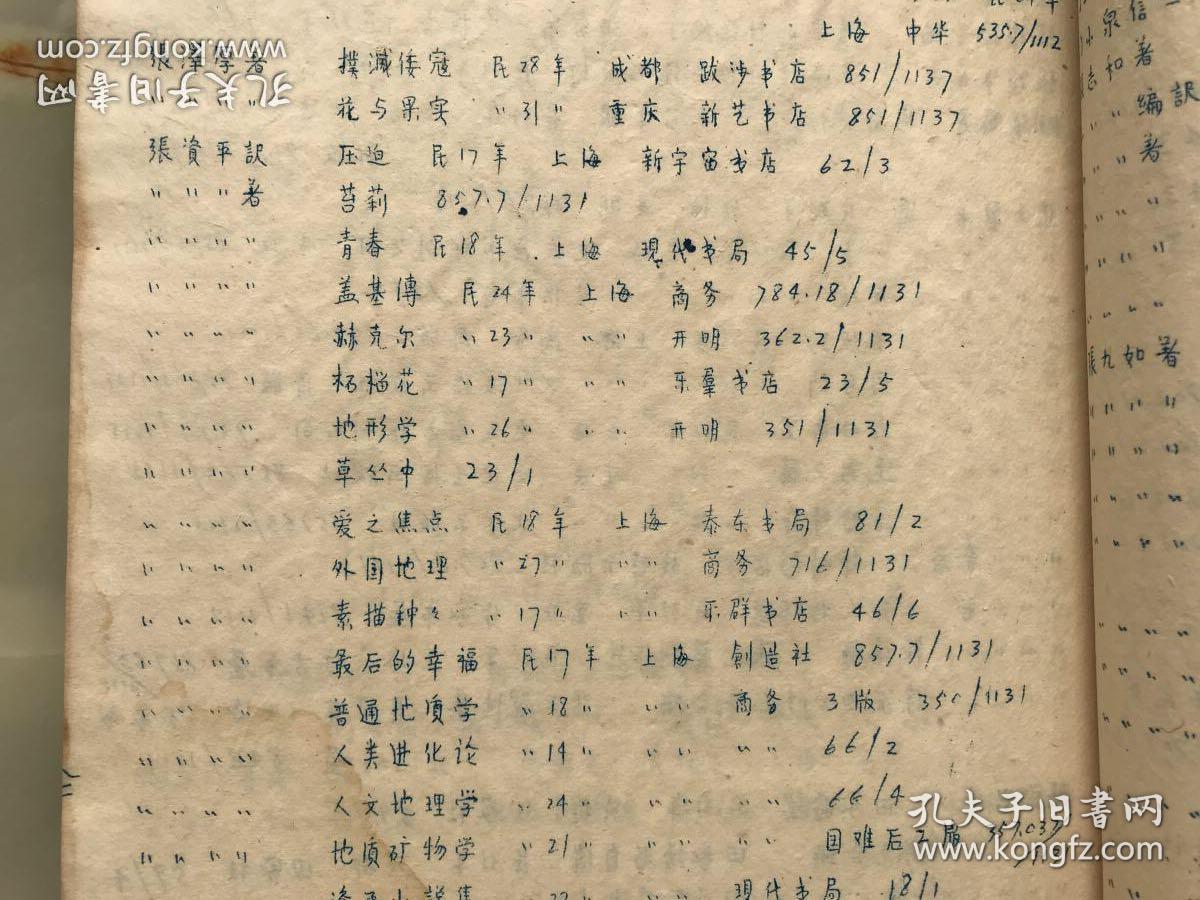 上海 中华 535.7/1112
張澤厚著 撲滅倭寇 民28年 成都 跋涉书店 851/1137
〃 〃 〃 花与果实 〃31〃 重庆 新艺书店 851/1137
張資平訳 压迫 民17年 上海 新宇宙书店 62/3
〃 〃 〃 著 苔莉 857.7/1131
〃 〃 〃 〃 青春 民18年 上海 現代书局 45/5
〃 〃 〃 〃 盖基傳 民24年 上海 商务 784.18/1131
〃 〃 〃 〃 赫克尔 〃23〃 〃 〃 开明 362.2/1131
〃 〃 〃 〃 柘榴花 〃17〃 〃 〃 乐羣书店 23/5
〃 〃 〃 〃 地形学 〃26〃 〃 〃 开明 351/1131
〃 〃 〃 〃 草丛中 23/1
〃 〃 〃 〃 爱之焦点 民18年 上海 泰东书局 81/2
〃 〃 〃 〃 外国地理 〃27〃 〃 〃 商务 716/1131
〃 〃 〃 〃 素描种々 〃17〃 〃 〃 乐群书店 46/6
〃 〃 〃 〃 最后的幸福 民17年 上海 創造社 857.7/1131
〃 〃 〃 〃 普通地质学 〃18〃 〃 〃 商务 3版 350/1131
〃 〃 〃 〃 人类进化论 〃14〃 〃 〃 〃 〃 66/2
〃 〃 〃 〃 人文地理学 〃24〃 〃 〃 〃 〃 66/4
〃 〃 〃 〃 地质矿物学 〃21〃 〃 〃 〃 〃 国难后 版 357.037
小説集 現代书局 18/1
泉信
志和著
〃 〃 編訳
〃 〃 著
張九如著
孔夫子旧書网
孔夫子旧書网
www.kongfz.com